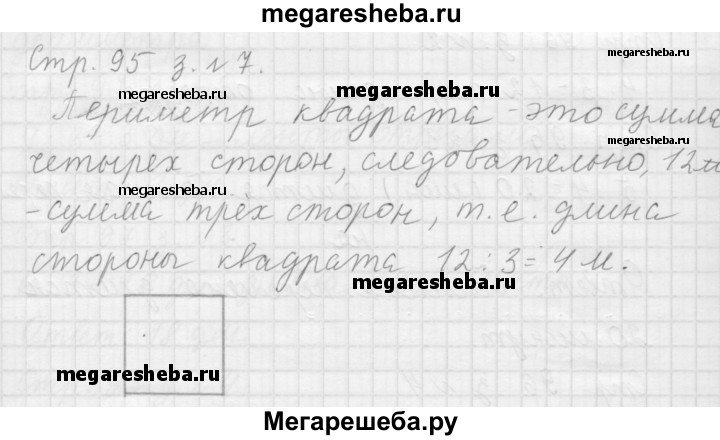 megaresheba.ru
Стр. 95 з. №7.
megaresheba.ru
megaresheba.ru
megaresheba.ru
Периметр квадрата - это сумма
megaresheba.ru
четырех сторон, следовательно, 12м
megaresheba.ru
- сумма трех сторон, т. е. длина
стороны квадрата 12 : 3 = 4 м.
megaresheba.ru
megaresheba.ru
Мегарешеба.ру